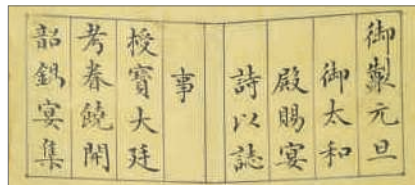 御製元旦
御太和
殿賜宴
詩以誌
事
授寶大廷
考眷饒開
韶錫宴集